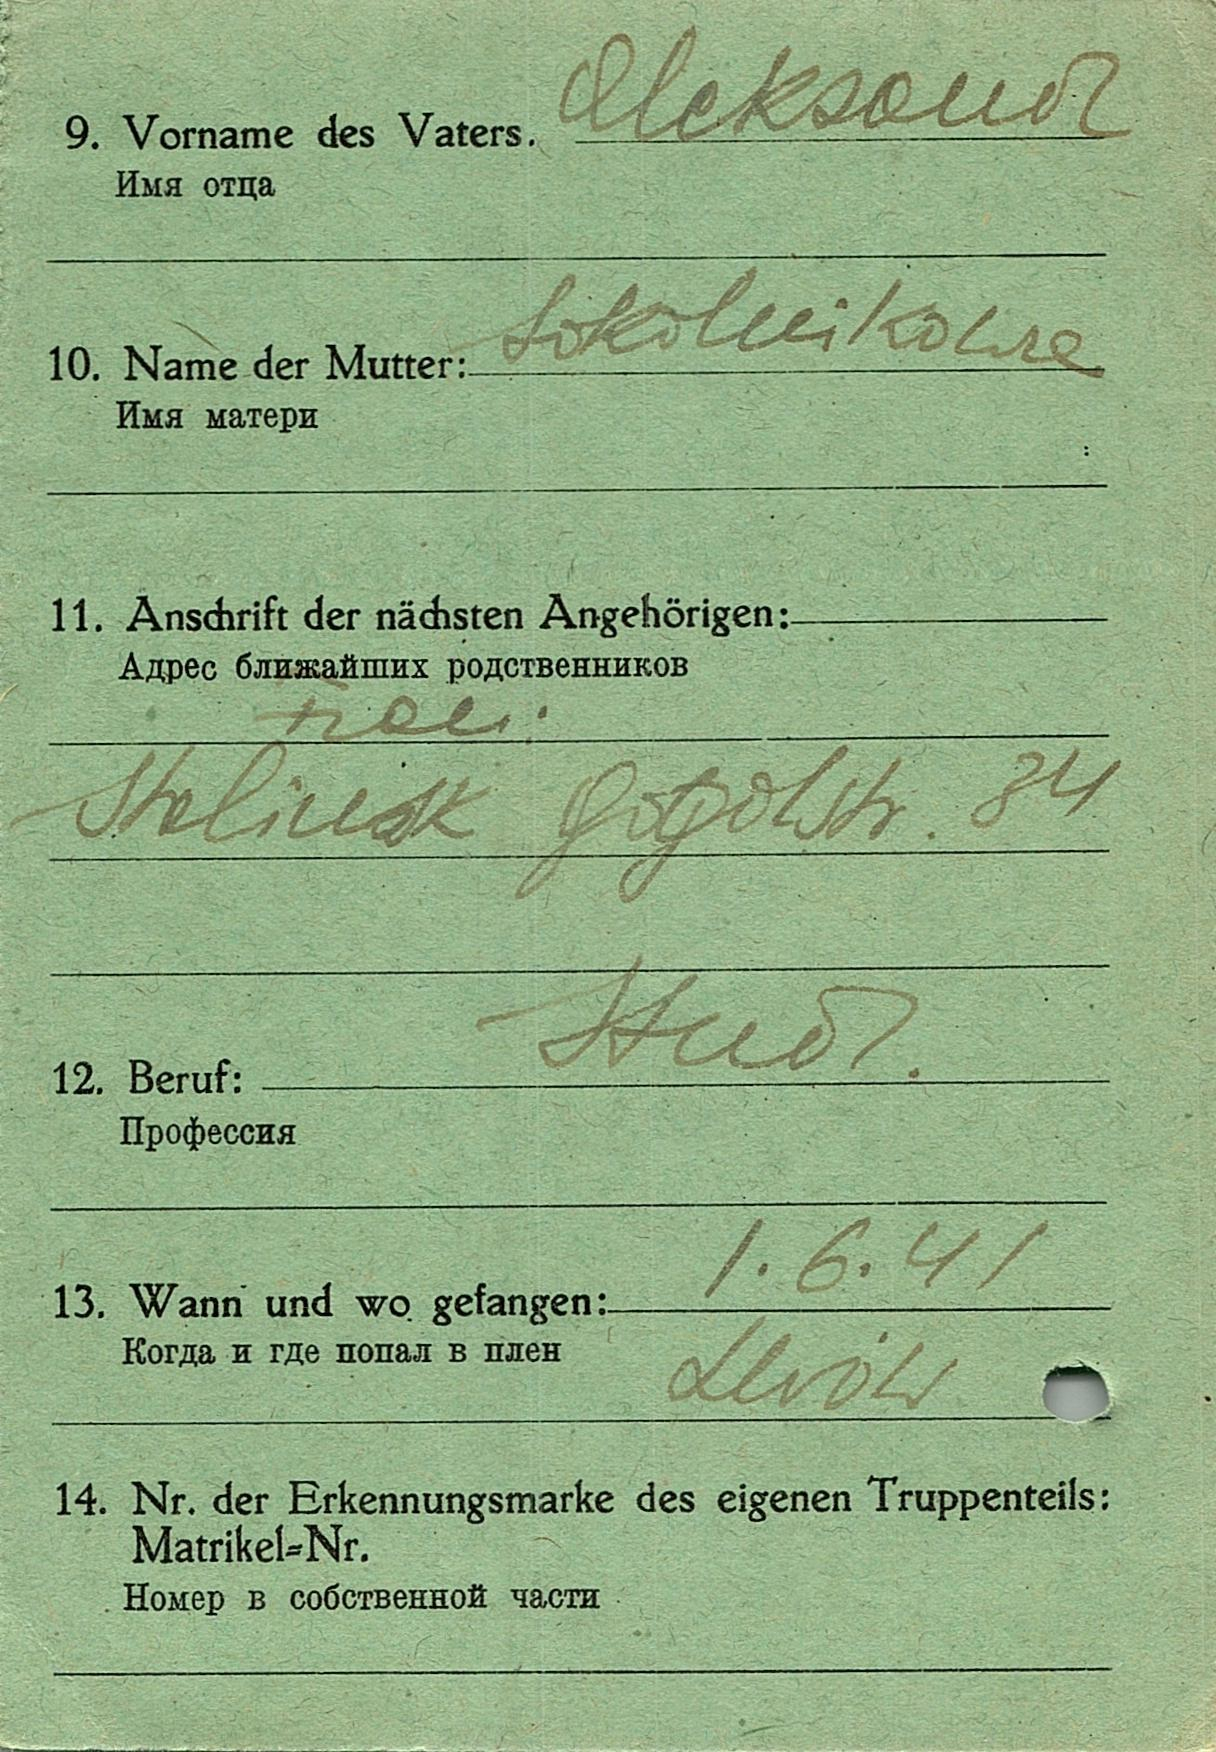 9. Vorname des Vaters. Aleksand
Имя отца
10. Name der Mutter: Sokolnikowa
Имя матери
11. Anschrift der nächsten Angehörigen:
Адрес ближайших родственников
Stalinsk Gogolstr. 84
12. Beruf: Stud.
Профессия
13. Wann und wo gefangen: 1.6.41
Когда и где попал в плен Lwów
14. Nr. der Erkennungsmarke des eigenen Truppenteils:
Matrikel-Nr.
Номер в собственной части